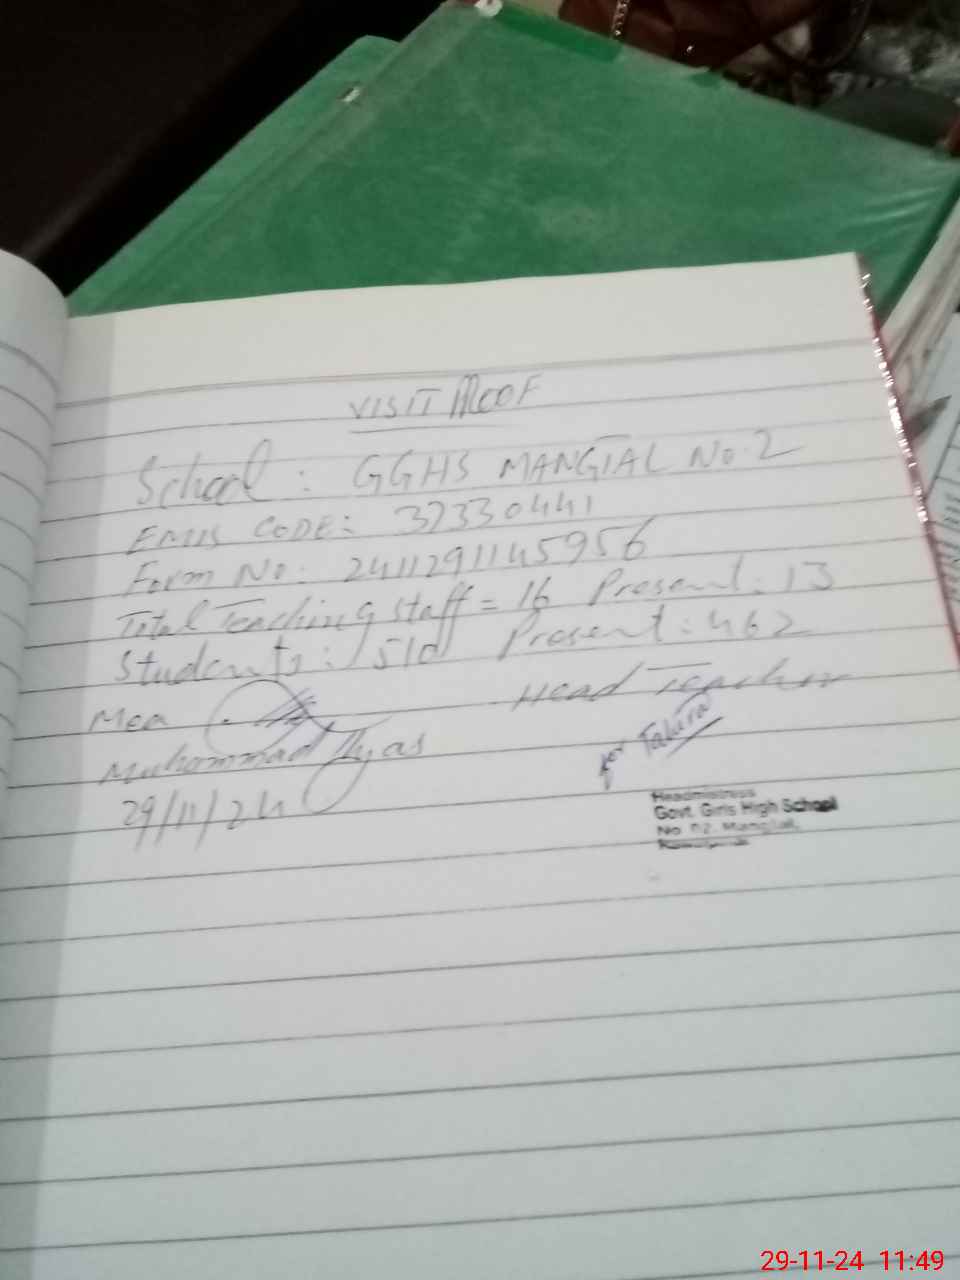 VISIT PROOF
School : GGHS MANGIAL No. 2
EMIS CODE: 37330441
Form No: 2411291145956
Total Teaching Staff = 16 Present: 13
Students: 510 Present: 462
Mea Head Teacher
Muhammad Ilyas for
29/11/24
Headmistress
Govt. Girls High School
No. 02, Mangial,
29-11-24 11:49